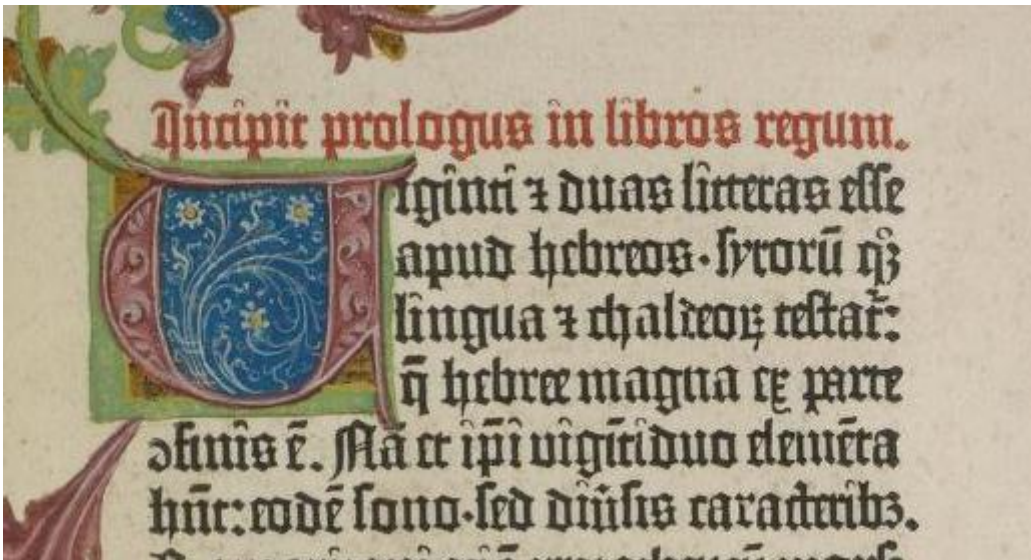 Incipit prologus in libros regum.
Viginti ⁊ duas litteras esse
apud hebreos·syrorū qꝫ
lingua ⁊ chaldeoꝝ testat̄:
q̄ hebree magna ex parte
ↄfinis ē. Nā et ip̄i vigīti duo elemēta
hn̄t: eodē sono·sed diūsis caracteribꝫ.